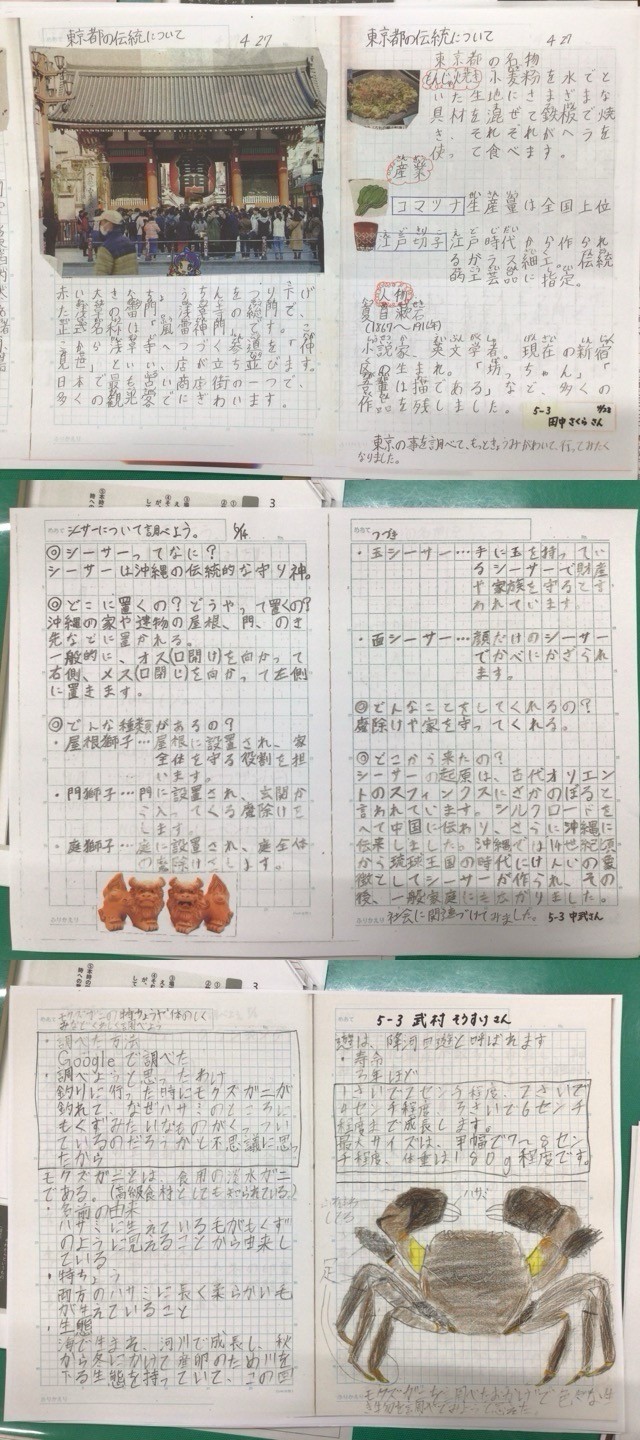 東京都の伝統について 4 27
赤い大きなちょうちんをつり下げ
た浅草の雷門。浅草寺の総門で、
正式名称は「風雷神門」です。こ
こから浅草寺へつづく参道を「仲
見世」といい、店が立ち並びます。
日本で最も古い商店街の一つで、
多くの観光客でにぎわいます。
東京都の伝統について 4 27
東京都の名物
もんじゃ焼き 小麦粉を水でと
いた生地にさまざまな
具材を混ぜて鉄板で焼
き、それぞれがヘラを
使って食べます。
産業
コマツナ 生産量は全国上位
江戸切子 江戸時代から作られ
るガラス細工。伝統
的工芸品に指定。
人物
夏目漱石
小説家、英文学者。現在の新宿
区の生まれ。「坊っちゃん」「
吾輩は猫である」など、多くの
作品を残しました。
5-3
田中さくらさん
東京の事を調べて、もっときょうみがわいて、行ってみたく
なりました。
めあて シーサーについて調べよう。 5/14
◎シーサーってなに?
シーサーは沖縄の伝統的な守り神。
◎どこに置くの?どうやって置くの?
沖縄の家や建物の屋根、門、のき
先などに置かれる。
一般的に、オス(口開け)を向かって
右側、メス(口閉じ)を向かって左側
に置きます。
◎どんな種類があるの?
・屋根獅子…屋根に設置され、家
全体を守る役割を担
います。
・門獅子…門に設置され、玄関か
ら入ってくる魔除けを
します。
・庭獅子…庭に設置され、庭全体
の魔除けをします。
ふりかえり
めあて つづき
・玉シーサー…手に玉を持ってい
るシーサーで財産
や家族を守るとす
われています。
・面シーサー…顔だけのシーサー
でかべにかざられ
ます。
◎どんなことをしてくれるの?
魔除けや家を守ってくれる。
◎どこから来たの?
シーサーの起原は、古代オリエン
トのスフィンクスにさかのぼると
言われています。シルクロードを
へて中国に伝わり、さらに沖縄に
伝来しました。沖縄では14世紀頃
から琉球王国の時代にけんいの象
徴としてシーサーが作られ、その
後、一般家庭にも広がりました。
ふりかえり 社会に関連づけてみました。 5-3 中武さん
モクズガニの特ちょうや体のしく
みなどくわしく調べよう
・調べた方法
Googleで調べた
・調べようと思ったわけ
釣りに行った時にモクズガニが
釣れて、なぜハサミのところに
もくずみたいなものがくっつい
ているのだろうかと不思議に思っ
たから
モクズガニとは、食用の淡水ガニ
である。(高級食材としても知られている)
・名前の由来
ハサミに生えている毛がもくず
のように見えることから由来し
ている
・特ちょう
両方のハサミに長く柔らかい毛
が生えていること
・生態
海で生まれ、河川で成長し、秋
から冬にかけて産卵のため川を
下る生態を持っていて、この回
ふりかえり
めあて 5-3 武村 そうすけさん
遊は、降河回遊と呼ばれます
・寿命
1さいで2センチ程度、2さいで
4センチ程度、3さいで6センチ
程度まで成長します。
最大サイズは、甲幅で7〜8セン
チ程度、体重は180g程度です。
ハサミ
足